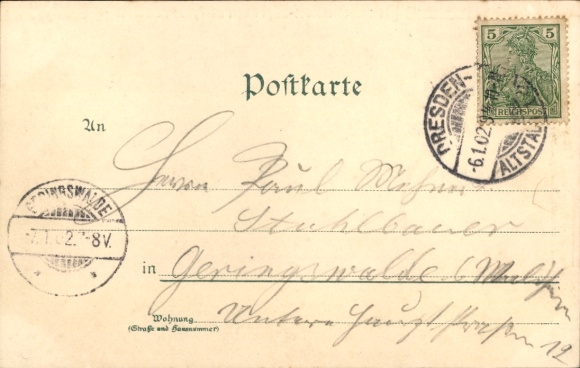 5 5
REICHSPOST
DRESDEN-
-6.1.02.
ALTSTADT
Postkarte
An
Herrn Paul
Stuhlbauer
GERINGSWALDE
7.1.02. 7-8V.
* *
in Geringswalde
Untere Hauptstrasse 19
Wohnung
(Straße und Hausnummer)